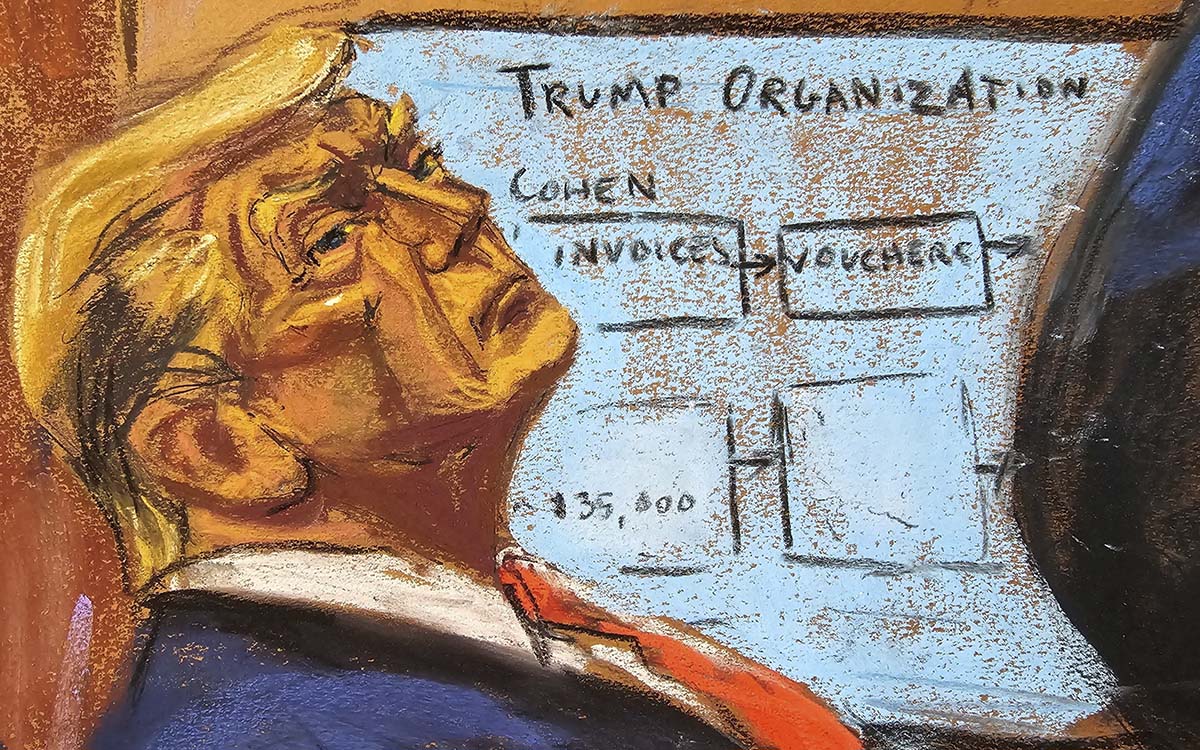 TRUMP ORGANIZATION
COHEN
INVOICES
VOUCHERS
$35,000